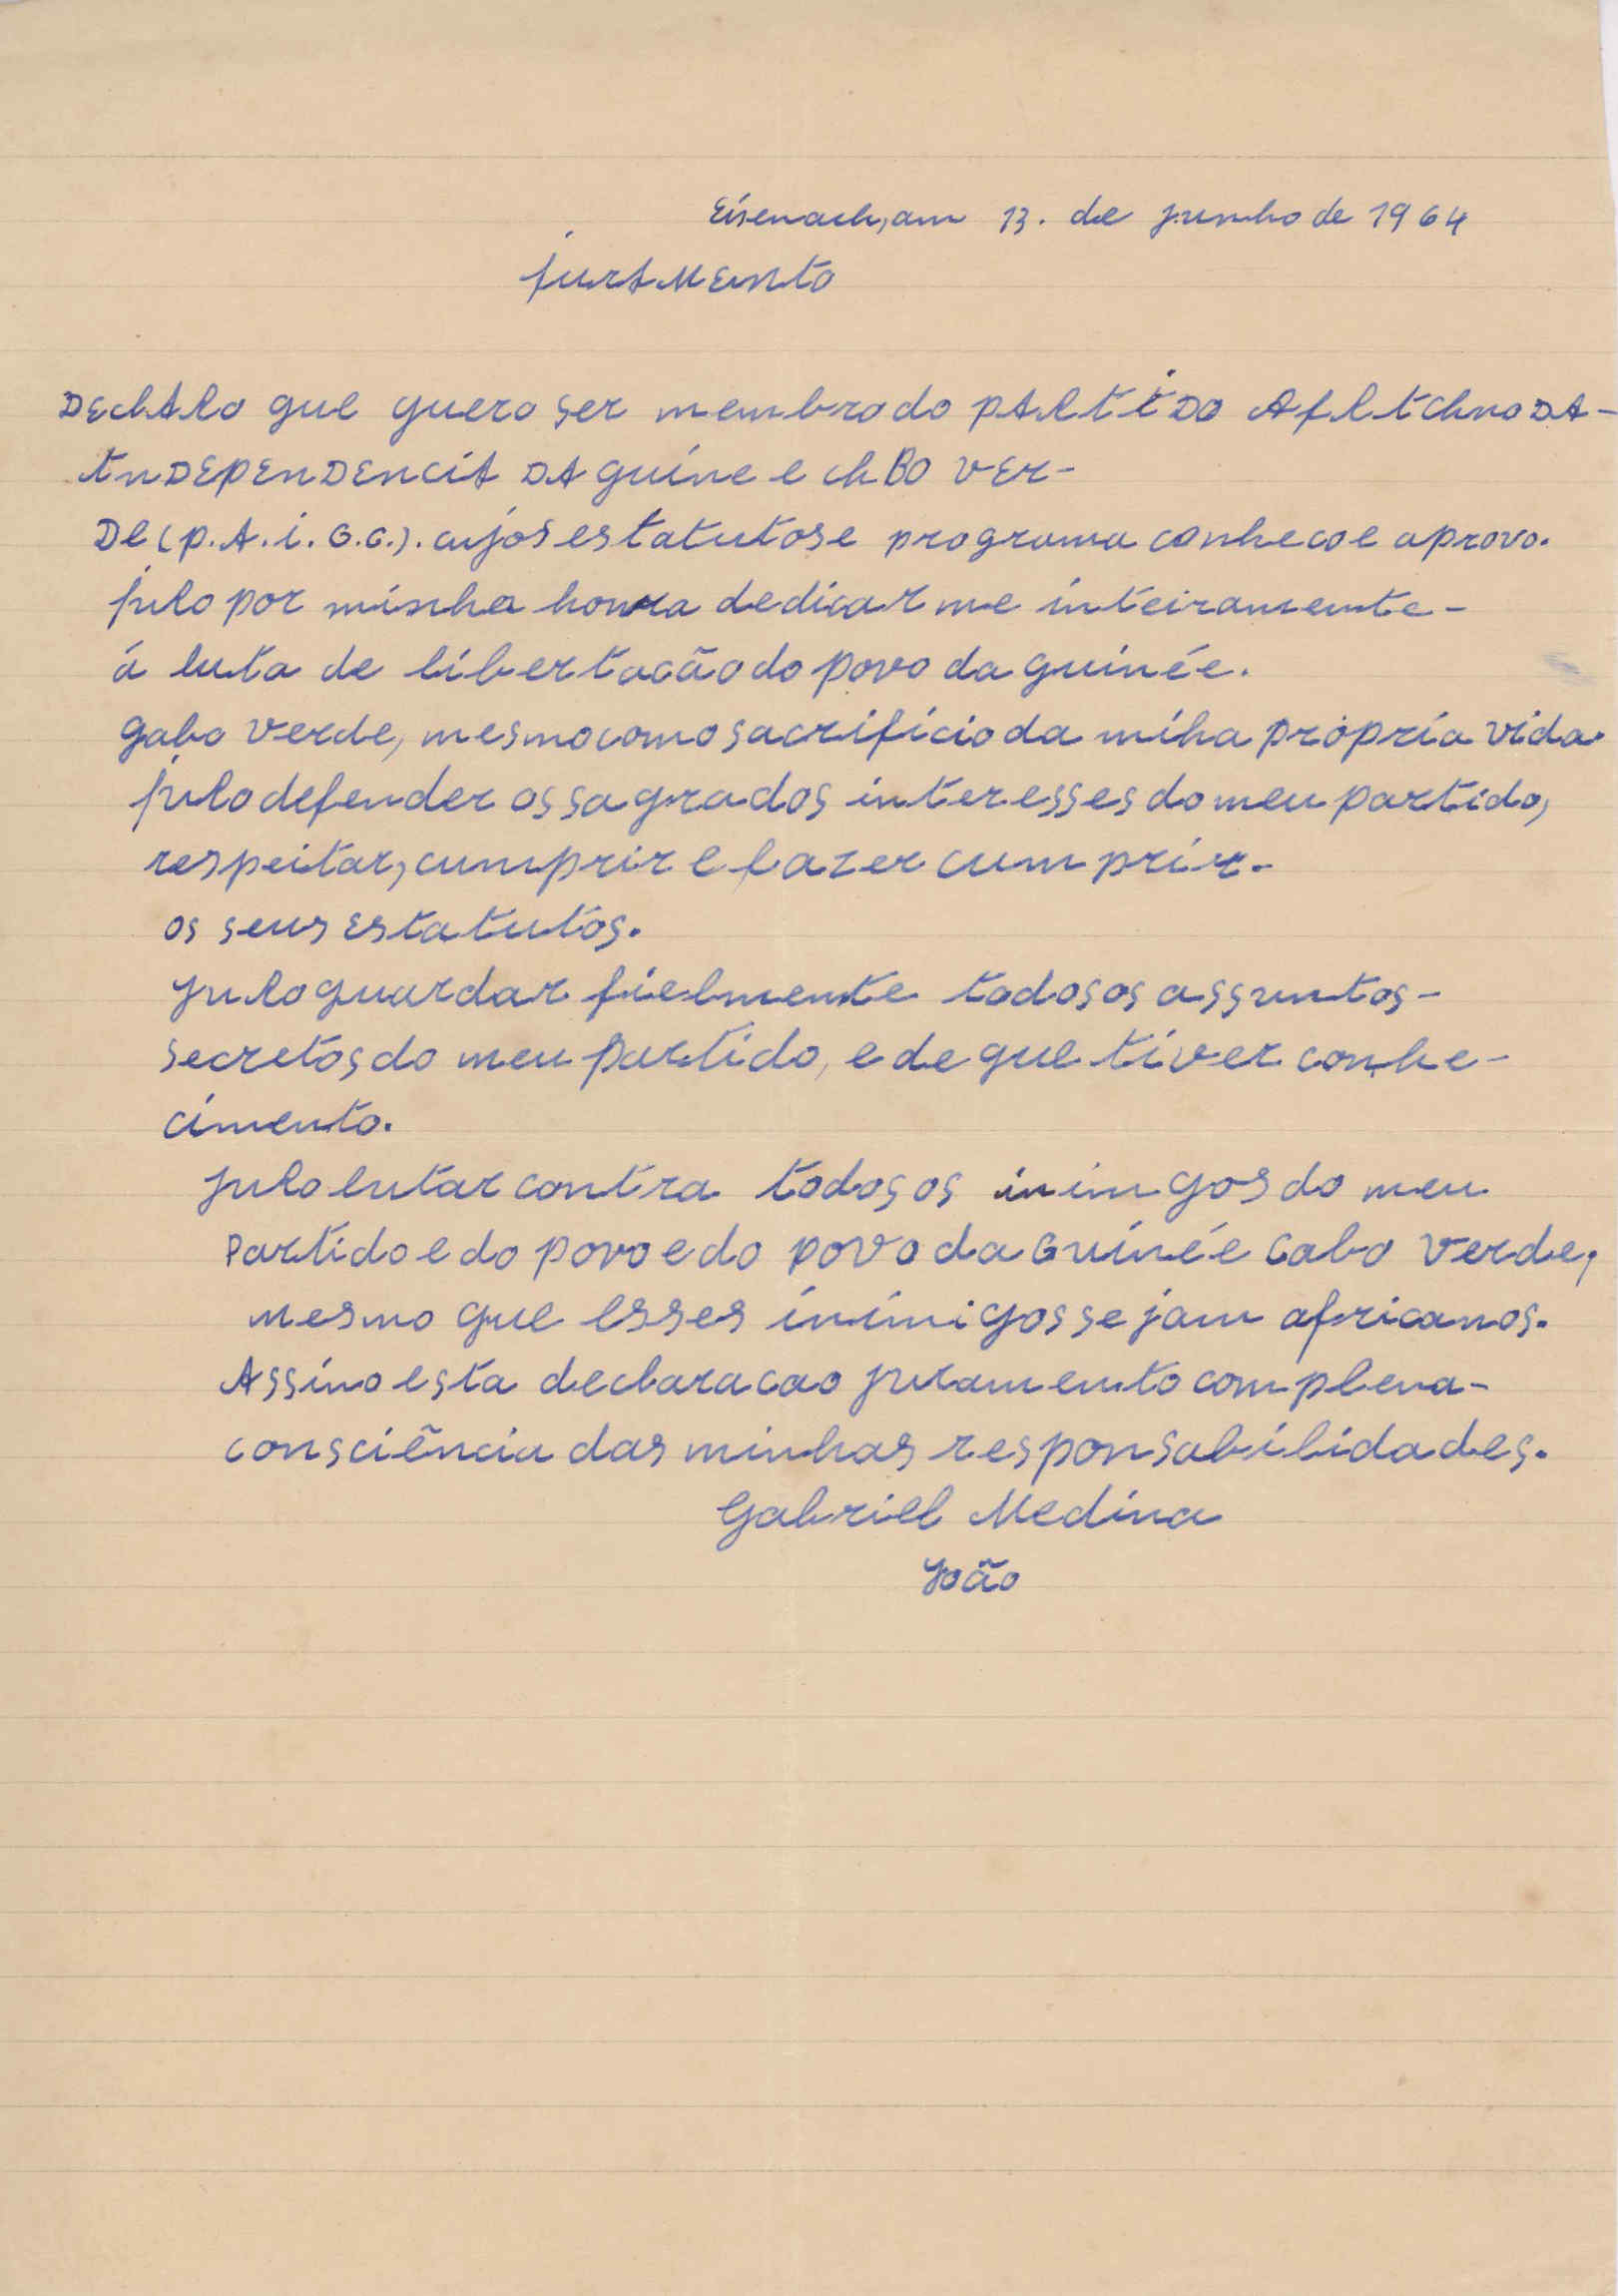 Eisenach, am 13. de junho de 1964
jurAMento
DEclARo que quero ser membro do PARtiDO AfRicAno DA-
inDEPEnDEnciA DA guine e cABO VEr-
De (p.A.i.G.C.). cujos estatutos e programa conheco e aprovo.
juro por minha honra dedicar me inteiramente-
á luta de libertacão do povo da guinée.
Gabo Verde, mesmo como sacrifício da miha própria vida.
juro defender os sagrados interesses do meu partido,
respeitar, cumprir e fazer cumprir.-
os seus estatutos.
juro guardar fielmente todos os assuntos-
secretos do meu partido, e de que tiver conhe-
cimento.
juro lutar contra todos os inimgos do meu
Partido e do povo e do povo da Guinée Cabo Verde,
mesmo que esses inimigos sejam africanos.
Assino esta declaracao juramento com plena-
consciência das minhas responsabilidades.
Gabriel Medina
João